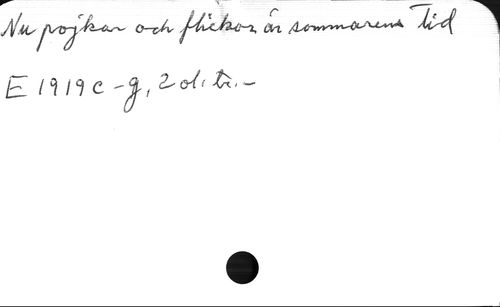 Nu pojkar och flickor är sommarens tid
E 1919 c - g, 2 ol. tr. -